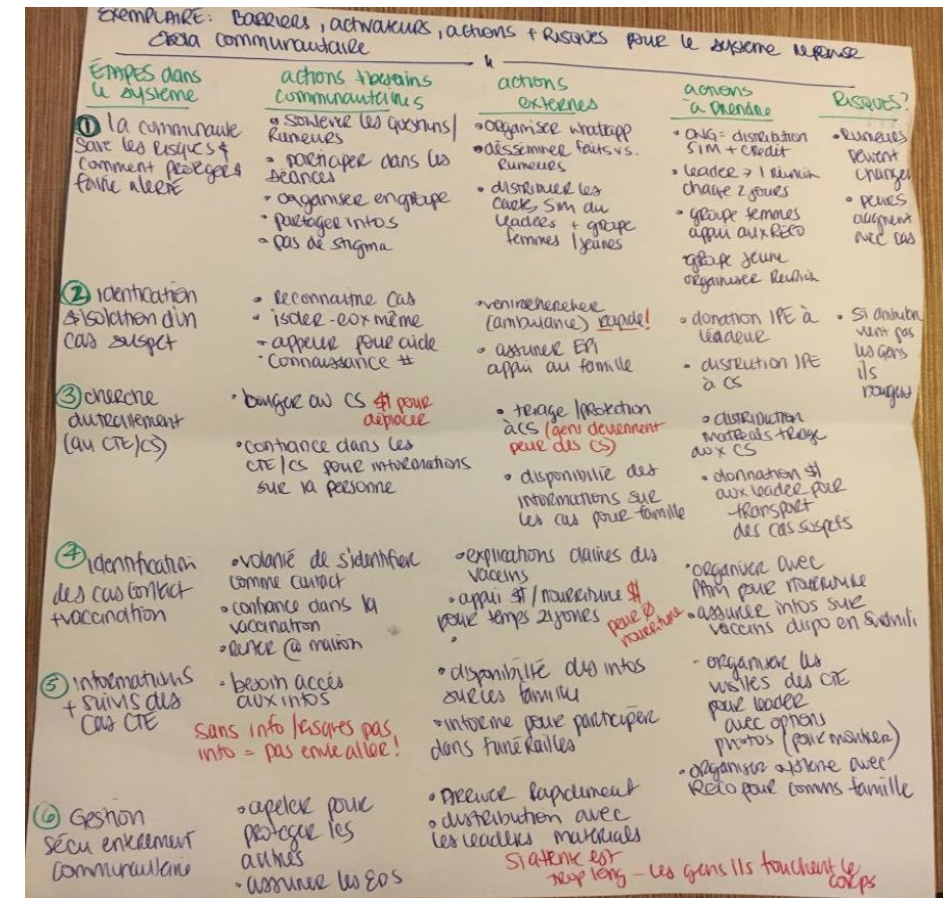 EXEMPLAIRE: BARRIERS, activateurs, actions + RISQUES pour le système réponse
Ebola communautaire
ÉTAPES dans
le système
actions + besoins
communautaires
actions
externes
actions
à prendre
RISQUES?
① la communauté
save les risques &
comment proteger &
faire alerte
• soulever les questions/
Rumeurs
• participer dans les
séances
• organiser en groupe
• partager infos
• pas de stigma
• organiser whatsapp
• disseminer faits vs.
Rumeurs
• distribuer les
carte sim au
leaders + groupe
femmes / jeunes
• ONG = distribution
SIM + credit
• leader → 1 réunion
chaque 2 jours
• groupe femmes
appui aux RECO
groupe jeune
organiser Reunion
• Rumeurs
peuvent
changer
• peurs
augment
avec cas
② identication
& isolation d'un
cas suspect
• Reconnaitre cas
• isoler - eux même
- appeler pour aide
• connaissance #
• venir chercher
(ambulance) rapide!
• assurer EPI
appui au famille
• donation IPE à
leadeur
• distrution IPE
à CS
• Si ambulan
vient pas
les gens
ils
bougent
③ cherche
du traitement
(au CTE/CS)
• bouger au CS $ pour
deplacer
• confiance dans les
CTE/CS pour informations
sur la personne
• triage / protection
à CS (gens deviennent
peur des CS)
• disponibilie des
informations sur
les cas pour famille
• distribution
materials triage
aux CS
• donnation $
aux leader pour
transport
des cas suspets
④ Identification
des cas contact
+ vaccination
• volonté de s'identifier
comme contact
• confiance dans la
vaccination
• rester @ maison
• explications claires des
vaccins
• appui $ / nourriture $
pour temps 21 jones
peur Ø
nourriture
• organiser avec
PAM pour nourriture
• assurer infos sur
vaccins dispo en Swahili
⑤ informations
+ suivis des
cas CTE
• besoin accés
aux infos
sans info / pas
info = pas envie aller!
• disponibilité des infos
sur les famille
• informe pour participer
dans funérailles
- organiser les
visites des CTE
pour leader
avec options
photos (pour montrer)
• organiser système avec
Reco pour comms famille
⑥ Gestion
sécu enterrement
communautaire
• apeler pour
proteger les
autres
• assurer les EDS
• Arriver Rapidement
• distribution avec
les leaders materials
Si attente est
trop long - les gens ils touchent le
corps